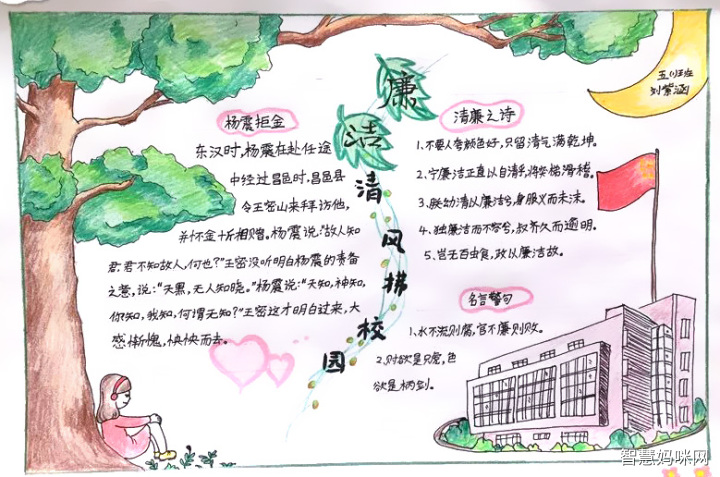 廉洁清风拂校园
五(1)班
刘紫涵
杨震拒金
东汉时,杨震在赴任途
中经过昌邑时,昌邑县
令王密山来拜访他,
并怀金十斤相赠。杨震说:"故人知
君,君不知故人,何也?"王密没听明白杨震的责备
之意,说:"天黑,无人知晓。"杨震说:"天知,神知,
你知,我知,何谓无知?"王密这才明白过来,大
感惭愧,怏怏而去。
清廉之诗
1、不要人夸颜色好,只留清气满乾坤。
2、宁廉洁正直以自清乎,将突梯滑稽。
3、朕幼清以廉洁兮,身服义而未沫。
4、独廉洁而不容兮,叔齐久而逾明。
5、岂无百虫食,政以廉洁故。
名言警句
1、水不流则腐,官不廉则败。
2、财欲是只鸾,色
欲是柄剑。
智慧妈咪网